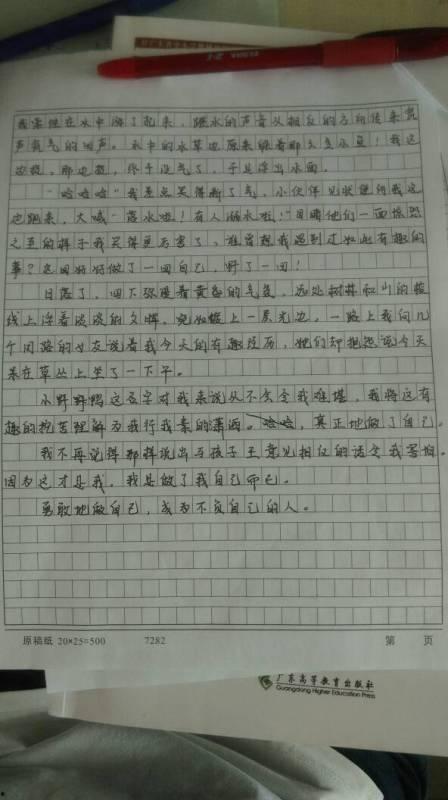 我索性在水中游了起来，踩水的声音从相反的方向传来瓮
声瓮气的回声。水中的水草也原来绕着那么多小鱼！我这
边捉，那边捉，终于没气了，于是浮出水面。
"哈哈哈"我差点笑得断了气，小伙伴见状便向我这
边跑来，大喊"落水啦！有人溺水啦！"目睹他们一面惊恐
之至的样子我笑得更厉害了，谁曾想我遇到过如此有趣的
事？这回好好做了一回自己，野了一回！
日落了，四下弥漫着黄昏的气息，远处树林和山的棱
线上浮着淡淡的夕晖，宛如镀上一层光边，一路上我向几
个同路的女友说着我今天的有趣经历，她们却抱怨说今天
呆在草丛上坐了一下午。
小野野鸭这名字对我来说从不会令我难堪，我将这有
趣的挖苦理解为我行我素的潇洒。哈哈，真正地做了自己。
我不再觉得那样说出与孩子王意见相反的话会令我害怕。
因为这才是我。我是做了我自己而已。
勇敢地做自己，成为不负自己的人。
原稿纸 20×25=500 7282 第 页
广东高等教育出版社
Guangdong Higher Education Press